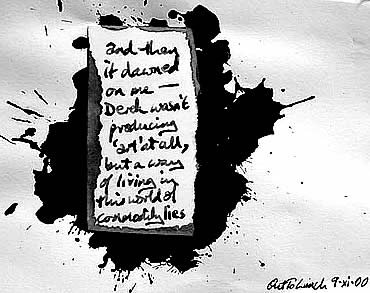 and then
it dawned
on me —
Derek wasn't
producing
'art' at all,
but a way
of living in
this world of
commodity lies
9-xi-00